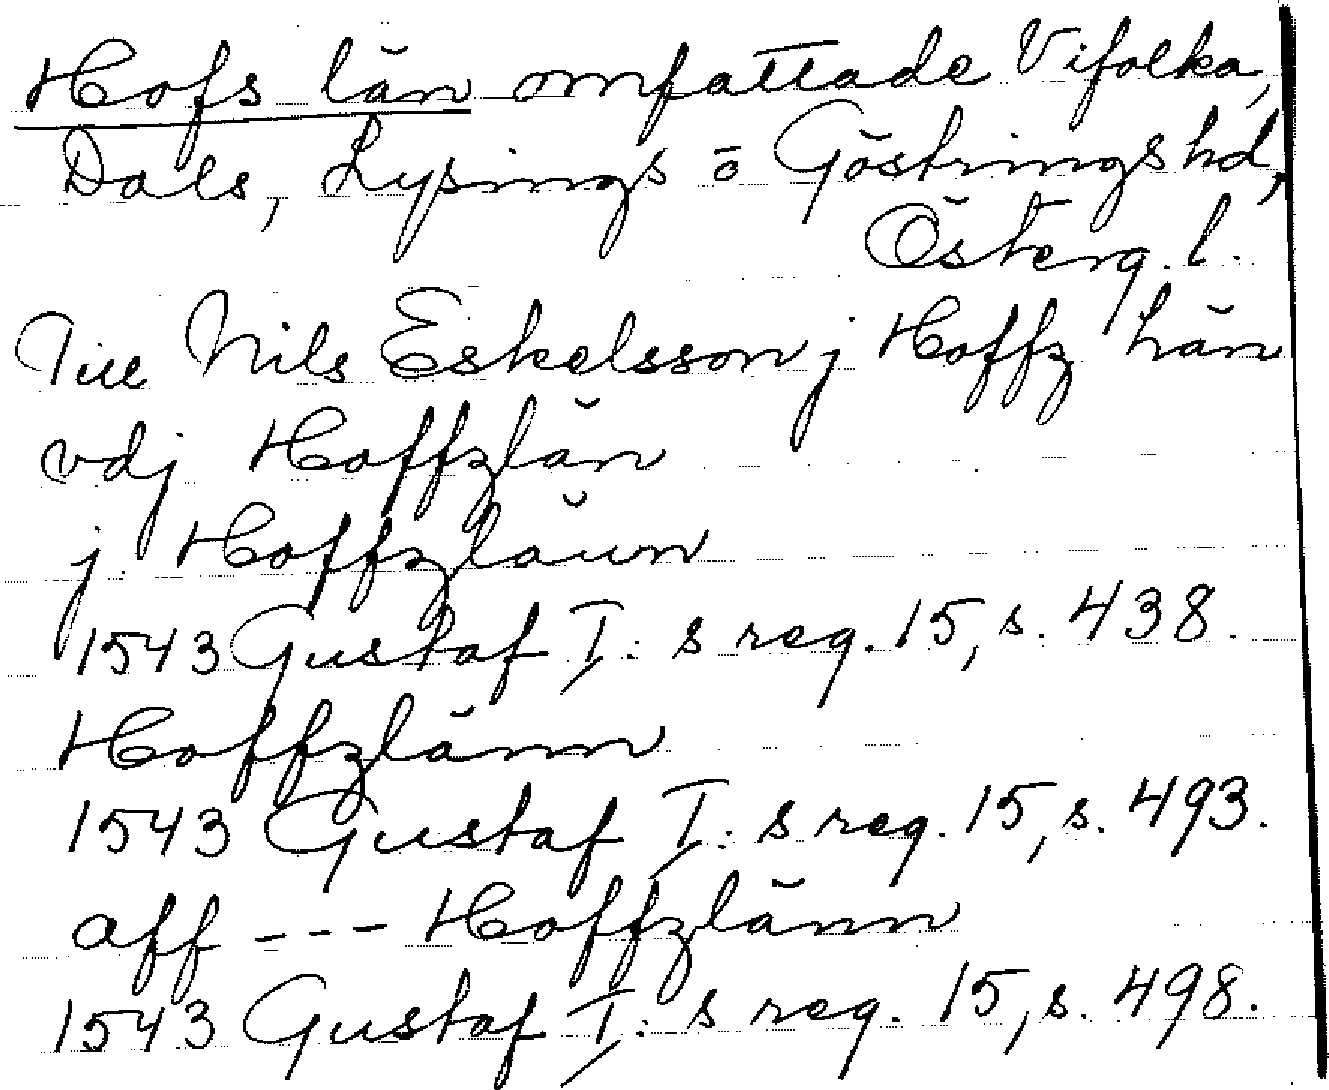 Hofs län omfattade Vifolka,
Dals, Lysings o Göstrings hd,
Österg. l.
Till Nils Eskelsson j Hoffz län
vdj Hoffzlän
j Hoffzläun
1543 Gustaf I: s reg. 15, s. 438.
Hoffzlänn
1543 Gustaf I: s reg. 15, s. 493.
aff --- Hoffzlänn
1543 Gustaf I: s reg. 15, s. 498.